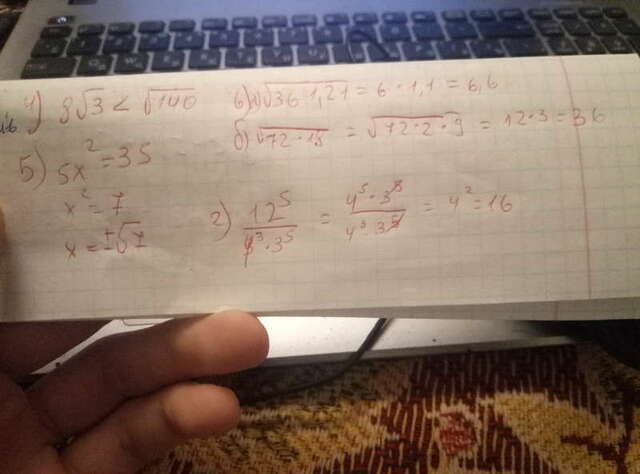 4) 8√3 < √140
5) 5x² = 35
x² = 7
x = ±√7
6) а) √36·1,21 = 6 · 1,1 = 6,6
б) √72·18 = √72·2·9 = 12·3 = 36
2) 12⁵ / 4³·3⁵ = 4⁵·3⁵ / 4³·3⁵ = 4² = 16